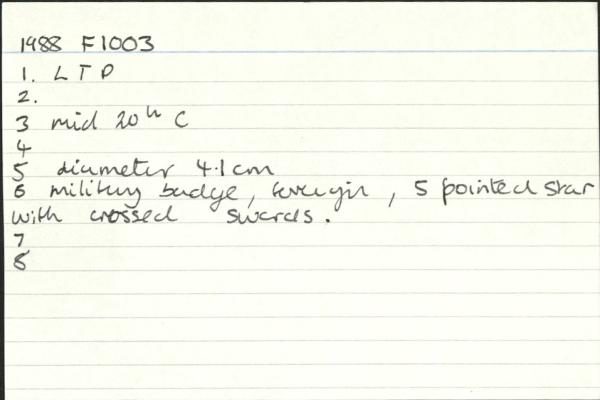 1988 F1003
1. L T P
2.
3 mid 20th C
4
5 diameter 4.1cm
6 military badge, foreign, 5 pointed star
with crossed swords.
7
8